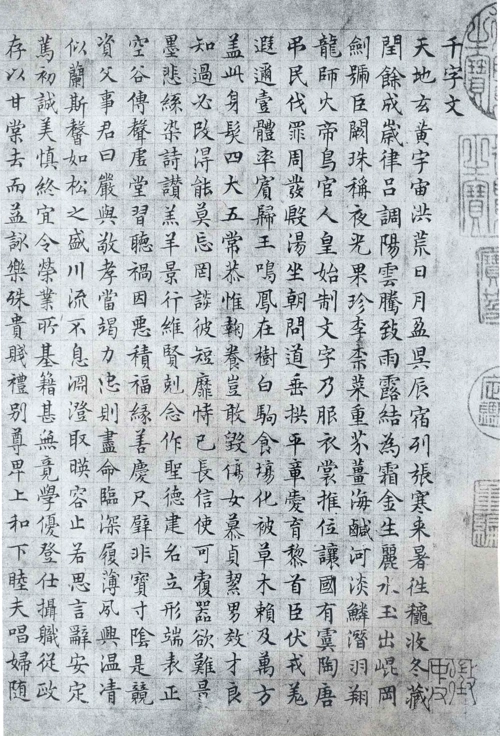 千字文
天地玄黃宇宙洪荒日月盈昃辰宿列張寒来暑往穐收冬藏
閏餘成歲律呂調陽雲騰致雨露結為霜金生麗水玉出崐岡
劍號巨闕珠稱夜光果珍李柰菜重芥薑海鹹河淡鱗潛羽翔
龍師火帝鳥官人皇始制文字乃服衣裳推位讓國有虞陶唐
弔民伐罪周發殷湯坐朝問道垂拱平章愛育黎首臣伏戎羌
遐邇壹體率賓歸王鳴鳳在樹白駒食場化被草木賴及萬方
蓋此身髮四大五常恭惟鞠養豈敢毀傷女慕貞絜男效才良
知過必改得能莫忘罔談彼短靡恃己長信使可覆器欲難量
墨悲絲染詩讚羔羊景行維賢剋念作聖德建名立形端表正
空谷傳聲虛堂習聽禍因惡積福緣善慶尺璧非寶寸陰是競
資父事君曰嚴與敬孝當竭力忠則盡命臨深履薄夙興温凊
似蘭斯馨如松之盛川流不息淵澄取暎容止若思言辭安定
篤初誠美慎終宜令榮業所基籍甚無竟學優登仕攝職從政
存以甘棠去而益詠樂殊貴賤禮別尊卑上和下睦夫唱婦隨